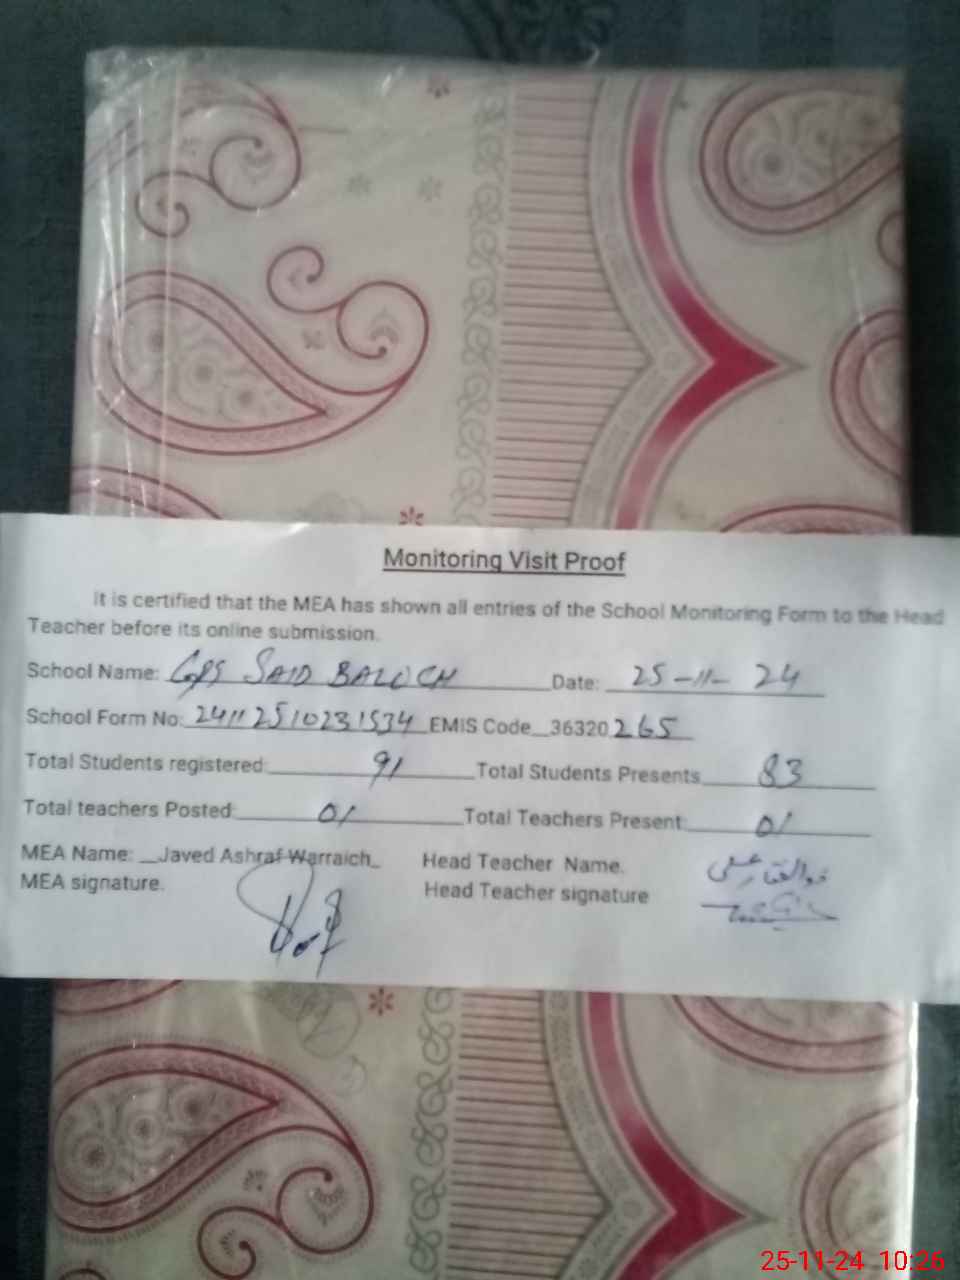 Monitoring Visit Proof
It is certified that the MEA has shown all entries of the School Monitoring Form to the Head
Teacher before its online submission.
School Name: GPS SAID BALOCH Date: 25-11-24
School Form No: 24112510231534 EMIS Code 36320265
Total Students registered: 91 Total Students Presents 83
Total teachers Posted: 01 Total Teachers Present: 01
MEA Name: Javed Ashraf Warraich Head Teacher Name. ذوالفقار علی
MEA signature. Head Teacher signature
25-11-24 10:26